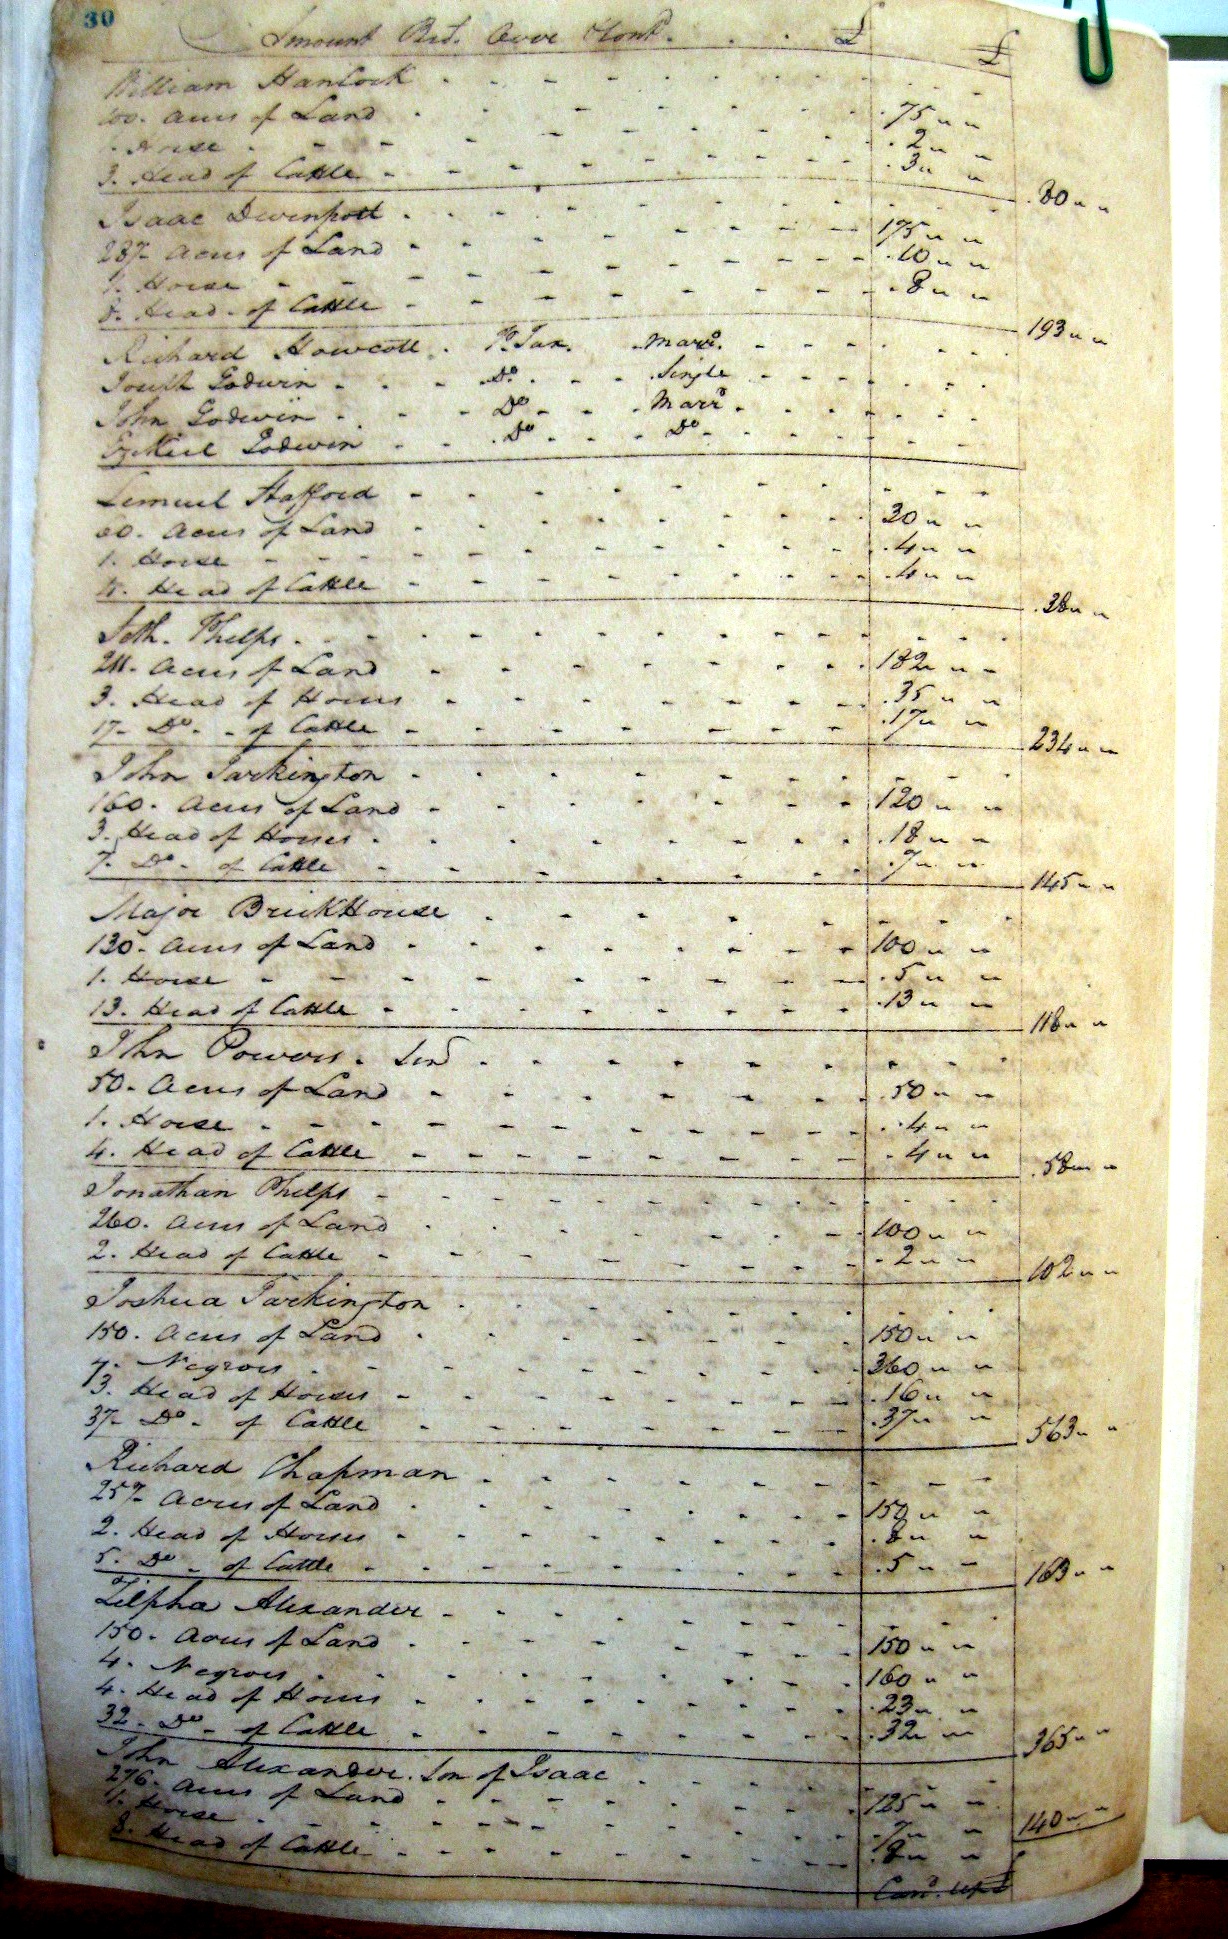 30
Amount Brt. Over Cont. £ £
William Hancock
100. Acres of Land . 75 " "
1. Horse . 2 " "
3. Head of Cattle . 3 " "
. 80 " "
Isaac Devenport
287 Acres of Land 175 " "
1. Horse . 10 " "
8. Head of Cattle . 8 " "
193 " "
Richard Howcott. P. Tax. Marrd.
Joseph Godwin Do. Single
John Godwin Do Marrd
Ezekiel Godwin Do Do
Lemuel Stafford
Acres of Land 30 " "
1. Horse . 4 " "
4. Head of Cattle . 4 " "
. 38 " "
Seth. Phelps
211. Acres of Land 182 " "
3. Head of Horses . 35 " "
17. Do. of Cattle . 17 " "
234 " "
John Tarkington
160. Acres of Land 120 " "
3. Head of Horses . 18 " "
7. Do. of Cattle . 7 " "
145 " "
Major BrickHouse
130. Acres of Land 100 " "
1. Horse . 5 " "
13. Head of Cattle . 13 " "
118 " "
John Powers. Senr
50. Acres of Land . 50 " "
1. Horse . 4 " "
4. Head of Cattle . 4 " "
. 58 " "
Jonathan Phelps
260. Acres of Land 100 " "
2. Head of Cattle . 2 " "
102 " "
Joshua Tarkington
150. Acres of Land 150 " "
Negroes 360 " "
3. Head of Horses . 16 " "
37. Do. of Cattle . 37 " "
563 " "
Richard Chapman
257 Acres of Land 150 " "
2. Head of Horses . 8 " "
5. Do. of Cattle . 5 " "
163 " "
Zilpha Alexander
150. Acres of Land 150 " "
4. Negroes 160 " "
4. Head of Horses . 23 " "
32. Do. of Cattle . 32 " "
365 " "
John Alexander. Son of Isaac
276. Acres of Land 125 " "
1. Horse . 7 " "
8. Head of Cattle . 8 " "
140 " "
Card. up £